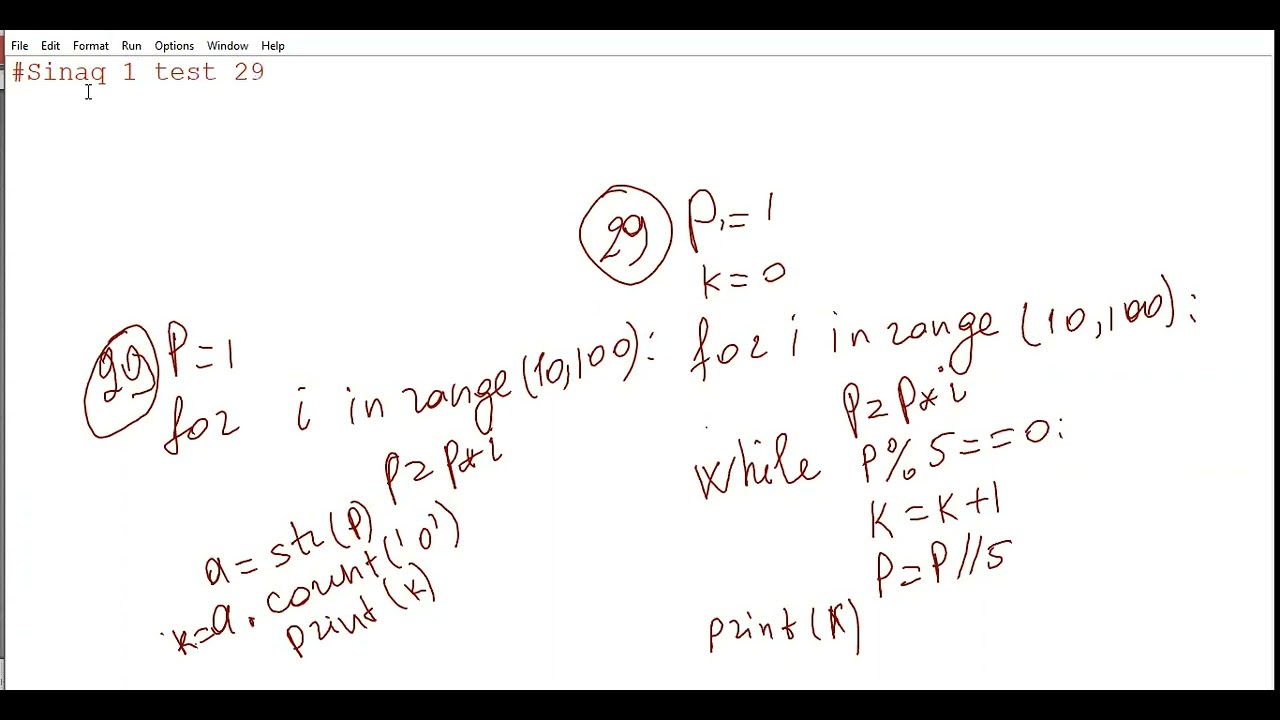 File Edit Format Run Options Window Help
#Sinaq 1 test 29
29 P=1
k=0
for i in range (10,100):
P=P*i
while P%5==0:
K=K+1
P=P//5
print(K)
29 P=1
for i in range(10,100):
P=P*i
a=str(P)
k=a.count('0')
print(K)